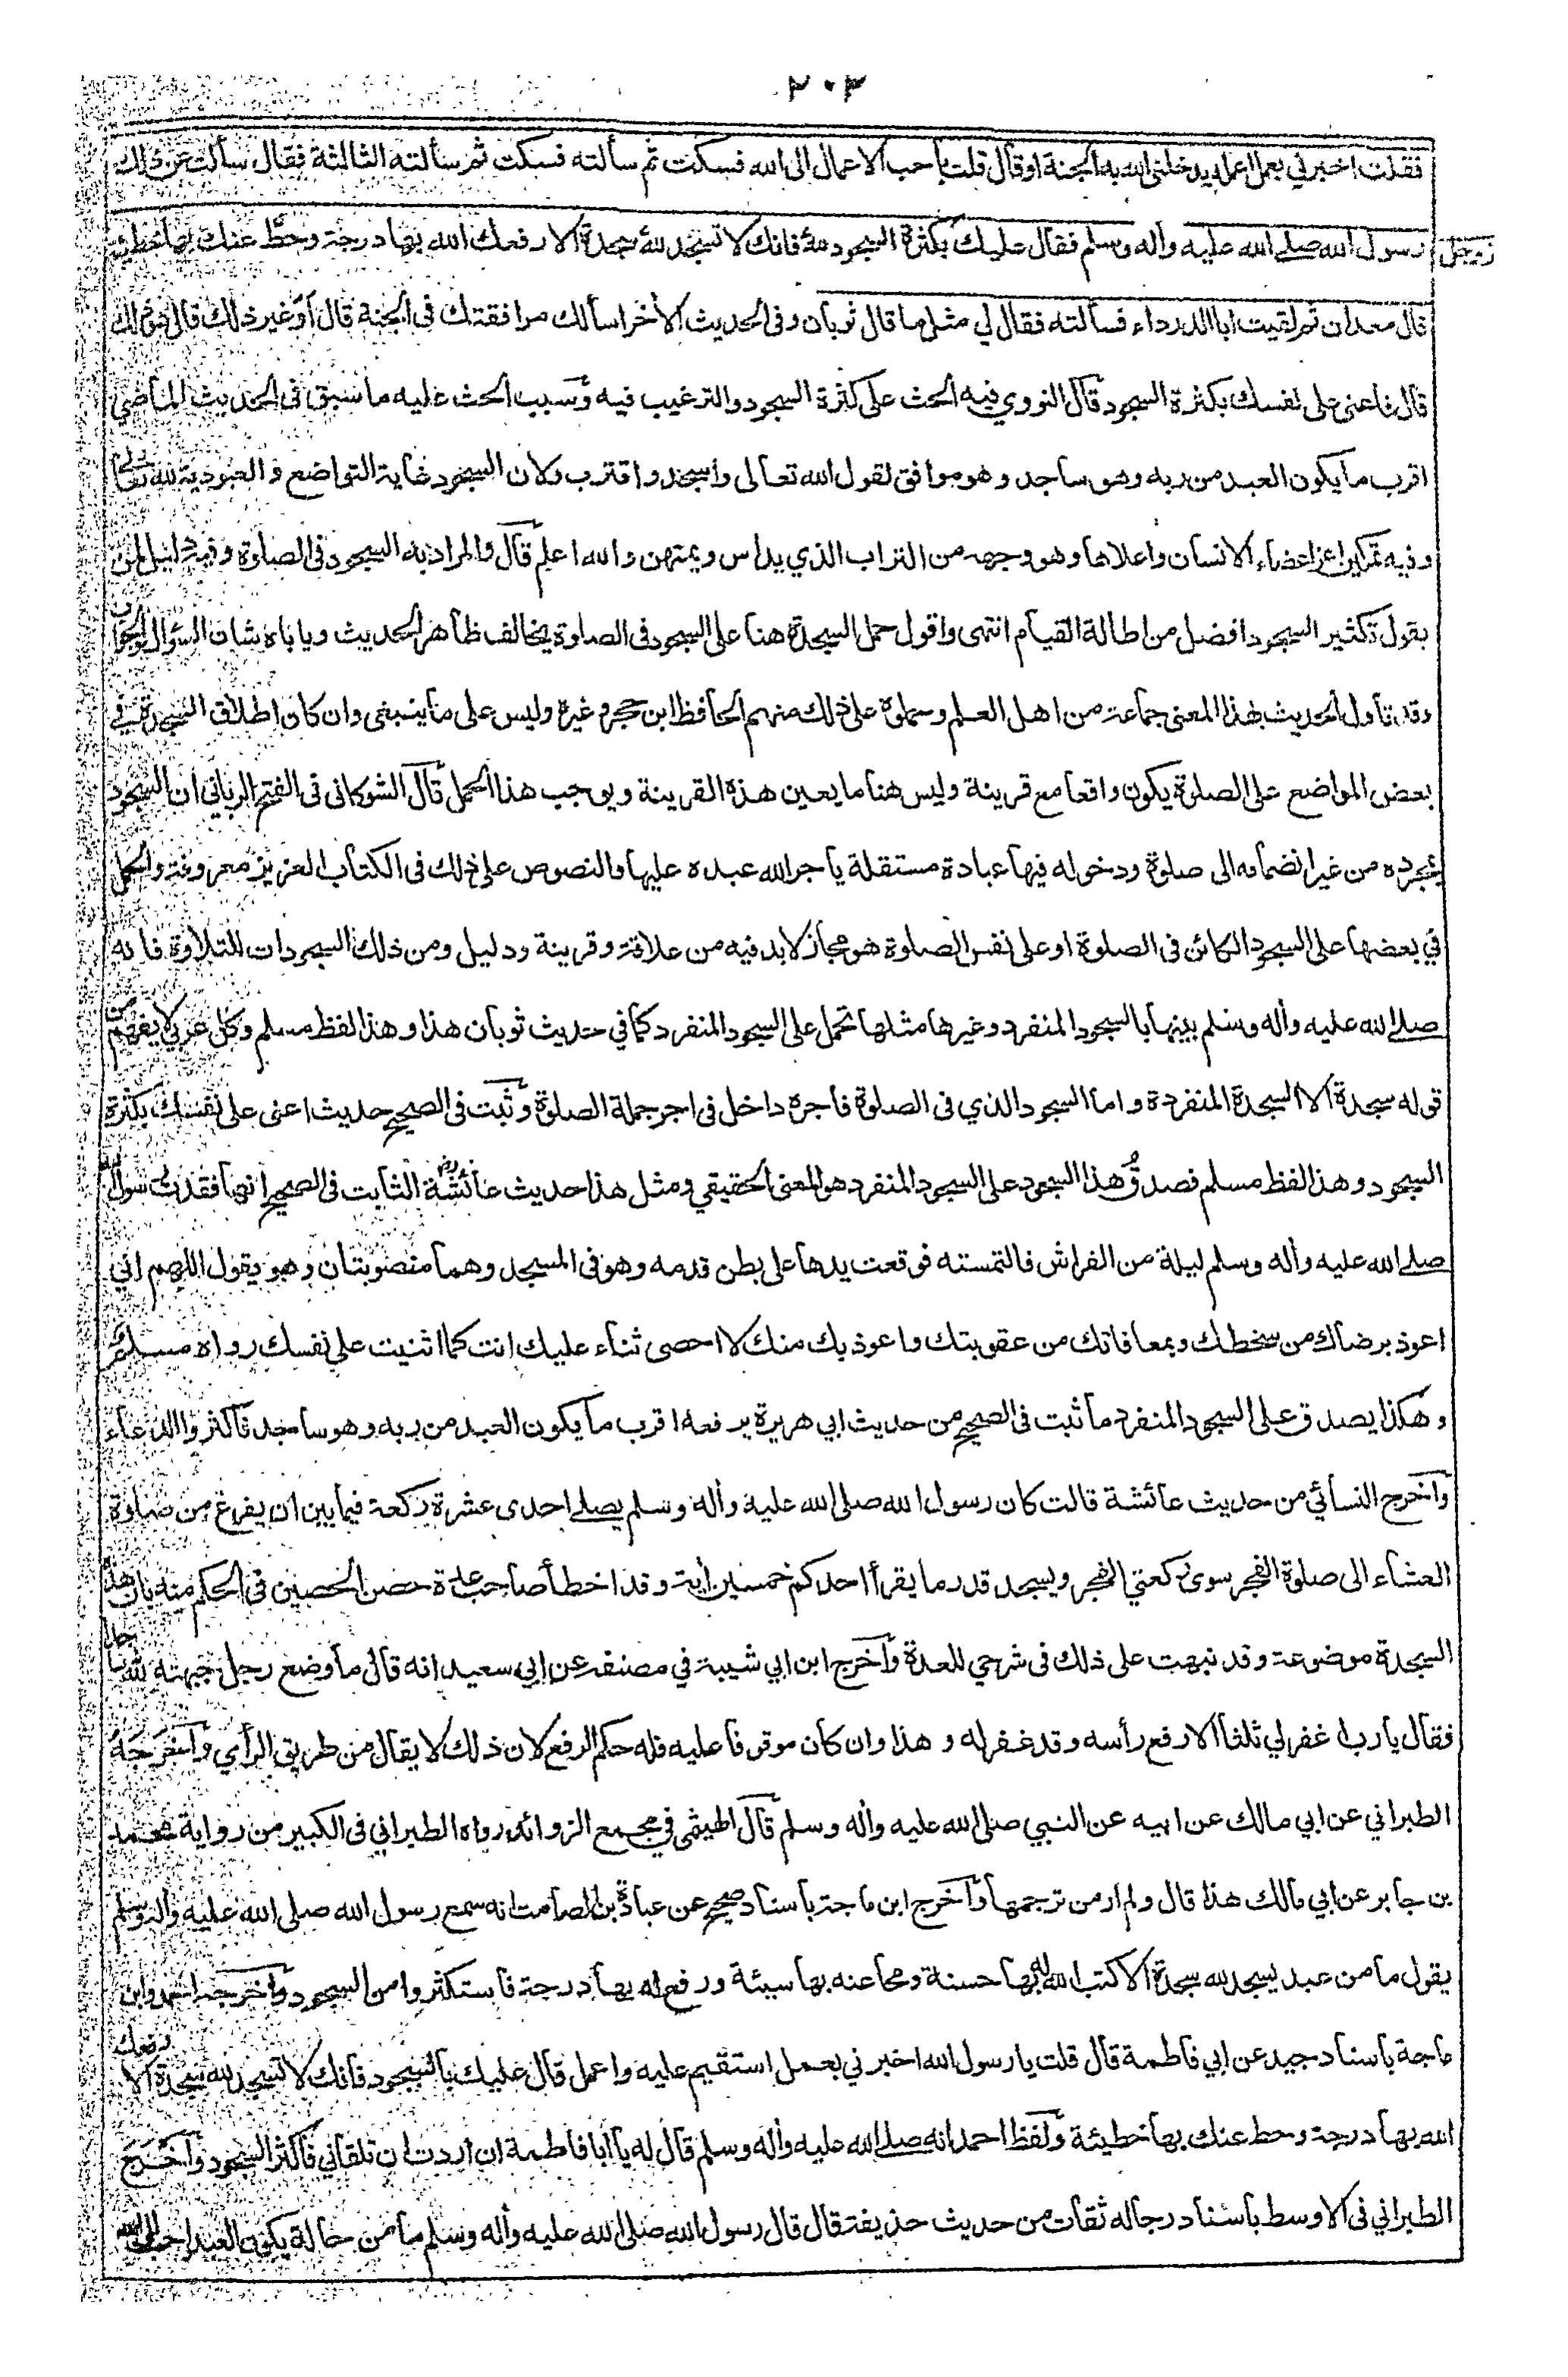 ٢٠٣
فقلت اخبرني بعمل اعمله يدخلني الله به الجنة او قال قلت بأحب الاعمال الى الله فسكت ثم سألته فسكت ثم سألته الثالثة فقال سألت عن ذلك
رسول الله صلے الله عليه وأله وسلم فقال عليك بكثرة السجود لله فانك لا تسجد لله سجدة الا رفعك الله بها درجة وحط عنك بها خطيئة
قال معدان ثم لقيت ابا الدرداء فسألته فقال لي مثل ما قال ثوبان وفى الحديث الأخر اسألك مرافقتك فى الجنة قال أو غير ذلك قال هو ذلك
قال فاعنى على نفسك بكثرة السجود قال النووي فيه الحث على كثرة السجود والترغيب فيه وسبب الحث عليه ما سبق فى الحديث الماضي
اقرب ما يكون العبد من ربه وهو ساجد وهو موافق لقول الله تعالى واسجد واقترب ولان السجود غاية التواضع والعبودية لله تعالى
وفيه تمكين اعز اعضاء الانسان واعلاها وهو وجهه من التراب الذي يداس ويمتهن والله اعلم قال والمراد به السجود فى الصلوة وفيه دليل لمن
يقول تكثير السجود افضل من اطالة القيام انتهى واقول حمل السجدة هنا على السجود فى الصلوة يخالف ظاهر الحديث ويا باه شان السؤال والجواب
وقد تأول الحديث بهذا المعنى جماعة من اهل العلم وحملوه على ذلك منهم الحافظ ابن حجر وغيره وليس على ما ينبغى وان كان اطلاق السجدة في
بعض المواضع على الصلوة يكون واقعا مع قرينة وليس هنا ما يعين هذه القرينة ويوجب هذا الحمل قال الشوكانى فى الفتح الربانى ان السجود
بمجرده من غير انضمامه الى صلوة ودخوله فيها عبادة مستقلة يأجر الله عبده عليها والنصوص على ذلك فى الكتاب العزيز معروفة والحمل
في بعضها على السجود الكائن فى الصلوة او على نفس الصلوة هو مجاز لا بد فيه من علاقة وقرينة ودليل ومن ذلك السجودات للتلاوة فانه
صلے الله عليه وأله وسلم بينها بالسجود المنفرد وغيرها مثلها تحمل على السجود المنفرد كما في حديث ثوبان هذا وهذا لفظ مسلم وكل عربي لا يفهم من
قوله سجدة الا السجدة المنفردة واما السجود الذي فى الصلوة فأجره داخل فى اجر جملة الصلوة وثبت فى الصحيح حديث اعنى على نفسك بكثرة
السجود وهذا لفظ مسلم فصدق هذا السجود على السجود المنفرد هو المعنى الحقيقي ومثل هذا حديث عائشة رض الثابت فى الصحيح انها فقدت رسول الله
صلے الله عليه وأله وسلم ليلة من الفراش فالتمسته فوقعت يدها على بطن قدمه وهو فى المسجد وهما منصوبتان وهو يقول اللهم انى
اعوذ برضاك من سخطك وبمعافاتك من عقوبتك واعوذ بك منك لا احصى ثناء عليك انت كما اثنيت على نفسك رواه مسلم
وهكذا يصدق على السجود المنفرد ما ثبت فى الصحيح من حديث ابي هريرة يرفعه اقرب ما يكون العبد من ربه وهو ساجد فاكثروا الدعاء
واخرج النسائي من حديث عائشة قالت كان رسول الله صلى الله عليه وأله وسلم يصلے احدى عشرة ركعة فيما بين ان يفرغ من صلوة
العشاء الى صلوة الفجر سوى ركعتي الفجر ويسجد قدر ما يقرأ احدكم خمسين أية وقد اخطأ صاحب عدة حصن الحصين فى الحكم منه بان هذه
السجدة موضوعة وقد نبهت على ذلك فى شرحي للعدة واخرج ابن ابي شيبة في مصنفه عن ابي سعيد انه قال ما وضع رجل جبهته لله ساجدا
فقال يا رب اغفر لي ثلثا الا رفع رأسه وقد غفر له وهذا وان كان موقوفا عليه فله حكم الرفع لان ذلك لا يقال من طريق الرأي واخرجه
الطبراني عن ابي مالك عن ابيه عن النبي صلى الله عليه وأله وسلم قال الهيثمى في مجمع الزوائد رواه الطبراني فى الكبير من رواية محمد
بن جابر عن ابي مالك هذا قال ولم ار من ترجمها واخرج ابن ماجة بأسناد صحيح عن عبادة بن الصامت انه سمع رسول الله صلى الله عليه وأله وسلم
يقول ما من عبد يسجد لله سجدة الا كتب الله له بها حسنة ومحا عنه بها سيئة ورفع له بها درجة فاستكثروا من السجود واخرجه احمد وابن
ماجة بأسناد جيد عن ابي فاطمة قال قلت يا رسول الله اخبرني بعمل استقيم عليه واعمل قال عليك بالسجود فانك لا تسجد لله سجدة الا رفعك
الله بها درجة وحط عنك بها خطيئة ولفظ احمد انه صلے الله عليه وأله وسلم قال له يا أبا فاطمة ان أردت ان تلقاني فأكثر السجود واخرج
الطبراني فى الاوسط بأسناد رجاله ثقات من حديث حذيفة قال قال رسول الله صلى الله عليه وأله وسلم ما من حالة يكون العبد احب الى الله